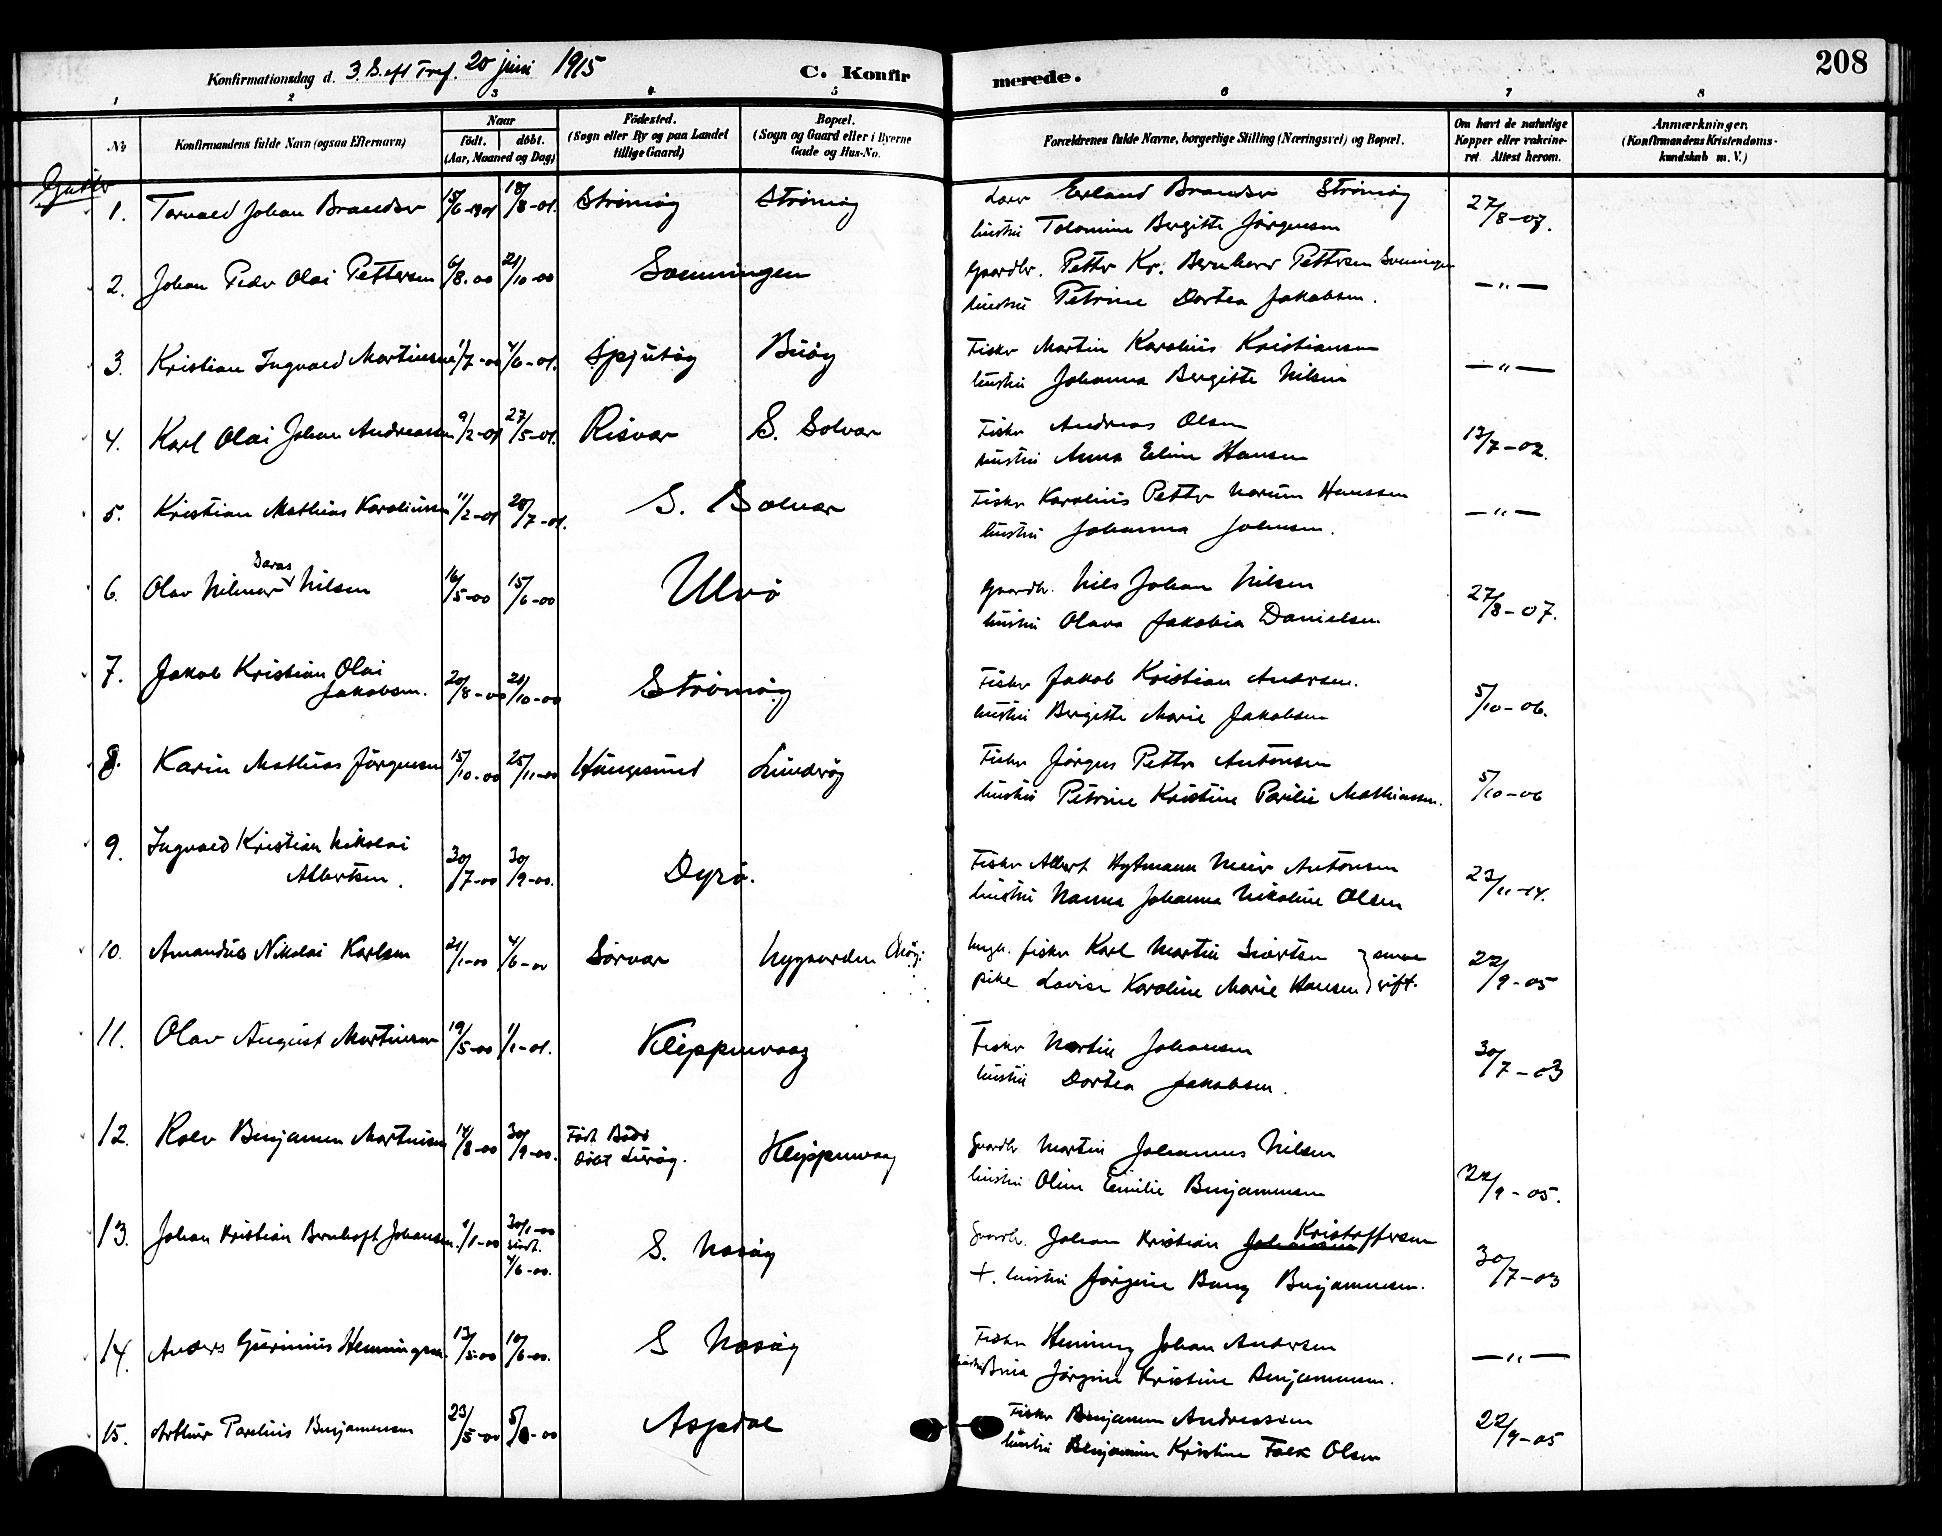 208
Konfirmationsdag d. 3. S. eft Tref. 20 juni 1915 C. Konfirmerede.
1 2 3 4 5 6 7 8
No
Konfirmandens fulde Navn (ogsaa Efternavn)
Naar
födt. döbt.
(Aar, Maaned og Dag)
Födested.
(Sogn eller By og paa Landet
tillige Gaard)
Bopæl.
(Sogn og Gaard eller i Byerne
Gade og Hus-No.
Forældrenes fulde Navne, borgerlige Stilling (Næringsvei) og Bopæl.
Om havt de naturlige
Kopper eller vaccine-
ret. Attest herom.
Anmærkninger.
(Konfirmandens Kristendoms-
kundskab m. V.)
Gutter
1. Torvald Johan Brandser 18/8-01. Strömöy Strömöy Erland Brandser Strömöy 27/8-07.
hustru Tolomine Bergitte Jörgensen
2. Johan Peder Olai Pettersen 6/8.00 21/10-00 Sommingen Gaardbr. Petter Kr. Bernhard Pettersen
hustru Petrine Dortea Jakobsen. —"—
3. Kristian Ingvald Martinsen 1/7-00 4/6-01. Spjutöy Buöy Fisker Martin Karolius Kristiansen
hustru Johanna Bergitte Nilsen —"—
4. Karl Olai Johan Andreassen 9/2-01 27/5-01. Risvar S. Solvær Fisker Andreas Olsen
hustru Anna Eline Hansen 13/7-02.
5. Kristian Mathias Karoliussen 11/2-01 28/7-01. S. Solvær Fisker Karolius Petter Norum Hanssen
hustru Johanna Johnsen. —"—
6. Olav Hilmar Nilsen 16/5-00 15/6-00 Ulvö Gaardbr. Nils Johan Nilsen
hustru Olava Jakobia Danielsen 27/8-07.
7. Jakob Kristian Olai
Jakobsen. 20/8-00 21/10-00 Strömöy Fisker Jakob Kristian Andersen.
hustru Bergitte Marie Jakobsen 5/10-06.
8. Karin Mathias Jörgensen 15/10-00 25/11-00 Kongsund Lunderöy Fisker Jörgen Petter Antonsen
hustru Petrine Kristine Parilie Mathiassen. 5/10-06
9. Ingvald Kristian Nikolai
Albertsen. 30/7-00 30/9-00. Dyrö. Fisker Albert Hytmann Meier Antonsen
hustru Nanna Johanna Nikoline Olsen 23/11-14.
10. Amandus Nikolai Karlsen 21/1-00 4/6-00 Sörvær Nygaarden Ungk. fisker Karl Martin Sivertsen
pike Lovise Karoline Marie Hansen } senere gift. 22/9-05
11. Olav August Martinsen 19/5-00 1/1-01. Kleppenvaag Fisker Martin Johansen
hustru Dortea Jakobsen. 30/7-03
12. Rolv Benjamin Martinsen 14/8-00 30/9-00. Födt Bodö
döbt Luröy. Kleppenvaag Gaardbr Martin Johannes Nilsen
hustru Oline Emilie Benjaminsen 22/9-05.
13. Johan Kristian Bernhoft Johansen. 1/1-00 30/1-00
4/6-00. S. Nesöy Gaardbr. Johan Kristian Johansen Kristoffersen
+. hustru Jörgine Berg Benjaminsen. 30/7-03
14. Anders Guerinius Henningsen. 13/5-00 10/6-00. S Nesöy Fisker Henning Johan Andersen
hustru Brita Jörgine Kristine Benjaminsen. —"—
15. Arthur Parelius Benjaminsen 23/5-00 5/8-00 Aspdal Fisker Benjamin Andreassen
hustru Benjamine Kristine Falk Olsen 22/9-05